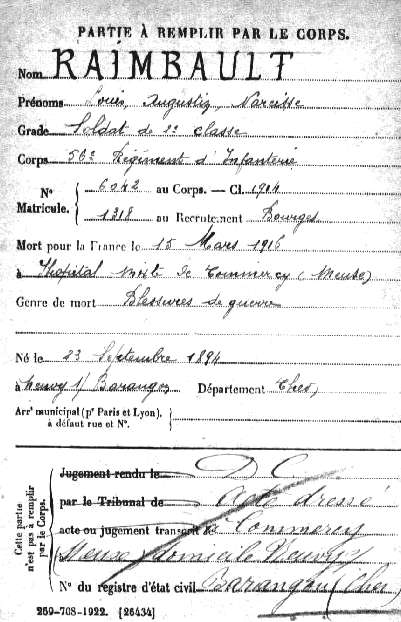 PARTIE À REMPLIR PAR LE CORPS.
Nom RAIMBAULT
Prénoms Louis, Augustin, Narcisse
Grade Soldat de 2e classe
Corps 56e Régiment d'Infanterie
N° Matricule. 6042 au Corps. — Cl. 1904
1318 au Recrutement Bourges
Mort pour la France le 15 Mars 1916
à l'hôpital mixte de Commercy (Meuse)
Genre de mort Blessures de guerre
Né le 23 Septembre 1894
à Neuvy s/ Barangeon Département Cher
Arr' municipal (p' Paris et Lyon),
à défaut rue et N°.
Cette partie n'est pas à remplir par le Corps.
Jugement rendu le D C
par le Tribunal de acte dressé
acte ou jugement transcrit à Commercy
Meuse domicile Neuvy s/
N° du registre d'état civil Barangeon (Cher)
259-708-1922. [26434]